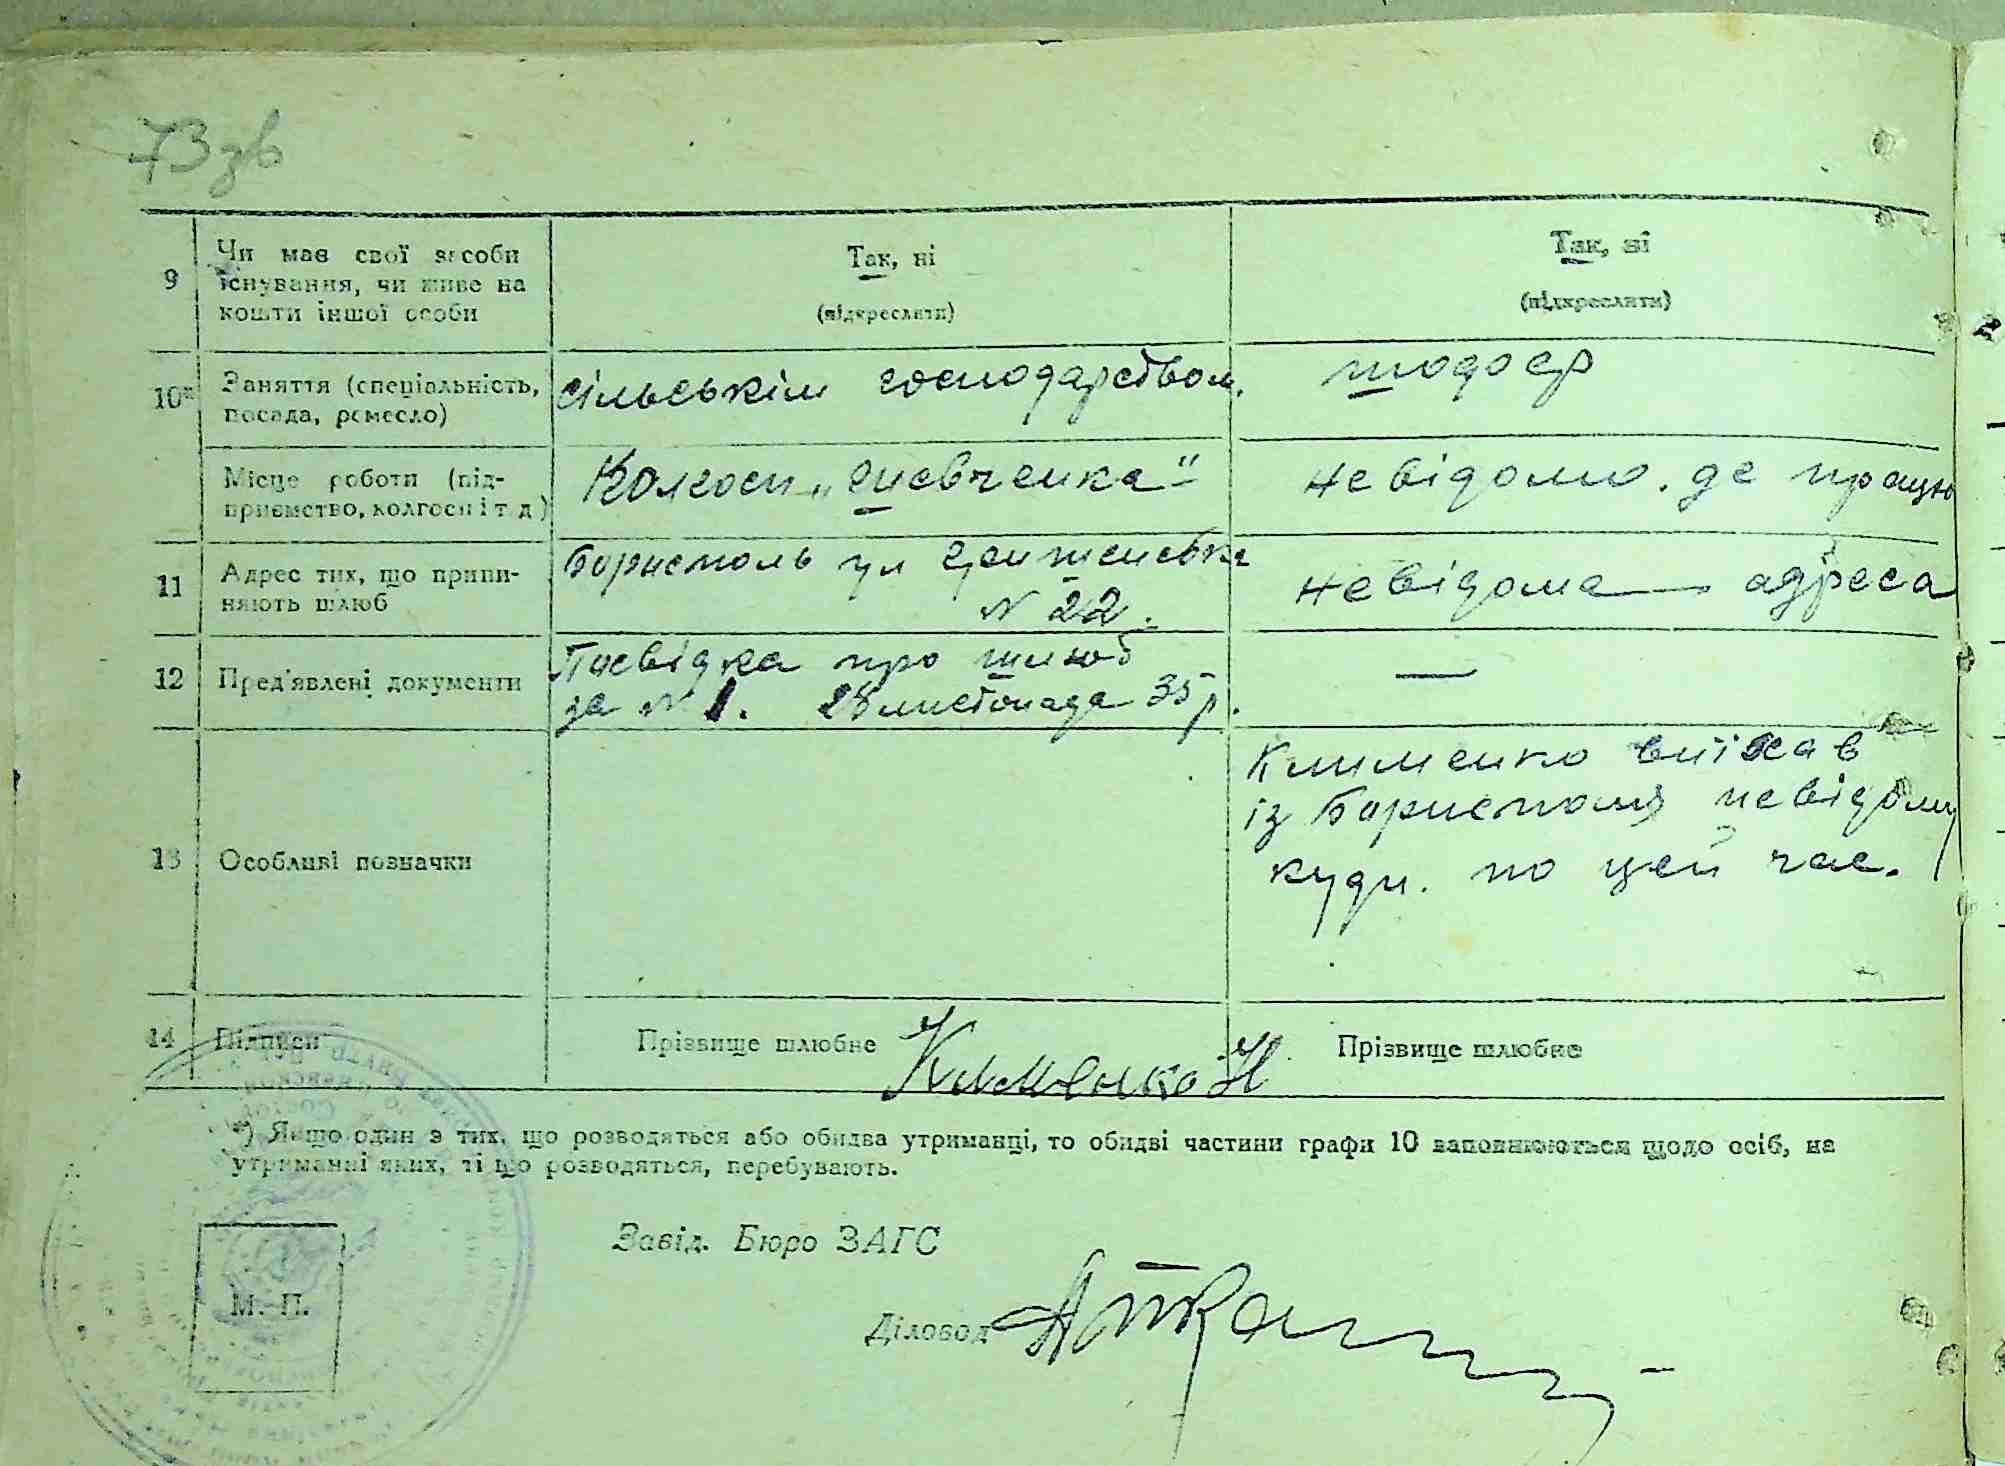 73 зв
9
Чи має свої засоби
існування, чи живе на
кошти іншої особи
Так, ні
(підкреслити)
Так, ні
(підкреслити)
10*
Заняття (спеціальність,
посада, ремесло)
сільськім господарством.
шофер
Місце роботи (під-
приємство, колгосп і т. д.)
Колгосп „Шевченка"
невідомо. де працю
11
Адрес тих, що припи-
няють шлюб
Бориспіль ул
N 22.
невідома — адреса
12
Пред'явлені документи
Посвідка про шлюб
за N 1. 28 листопада 35 р.
—
13
Особливі позначки
Клименко виїхав
із Борисполя невідому
куди. по цей час.
14
Підписи
Прізвище шлюбне
Клименко Н
Прізвище шлюбне
*) Якщо один з тих, що розводяться або обидва утриманці, то обидві частини графи 10 заповнюються щодо осіб, на
утриманні яких, ті що розводяться, перебувають.
Завід. Бюро ЗАГС
М. П.
Діловод